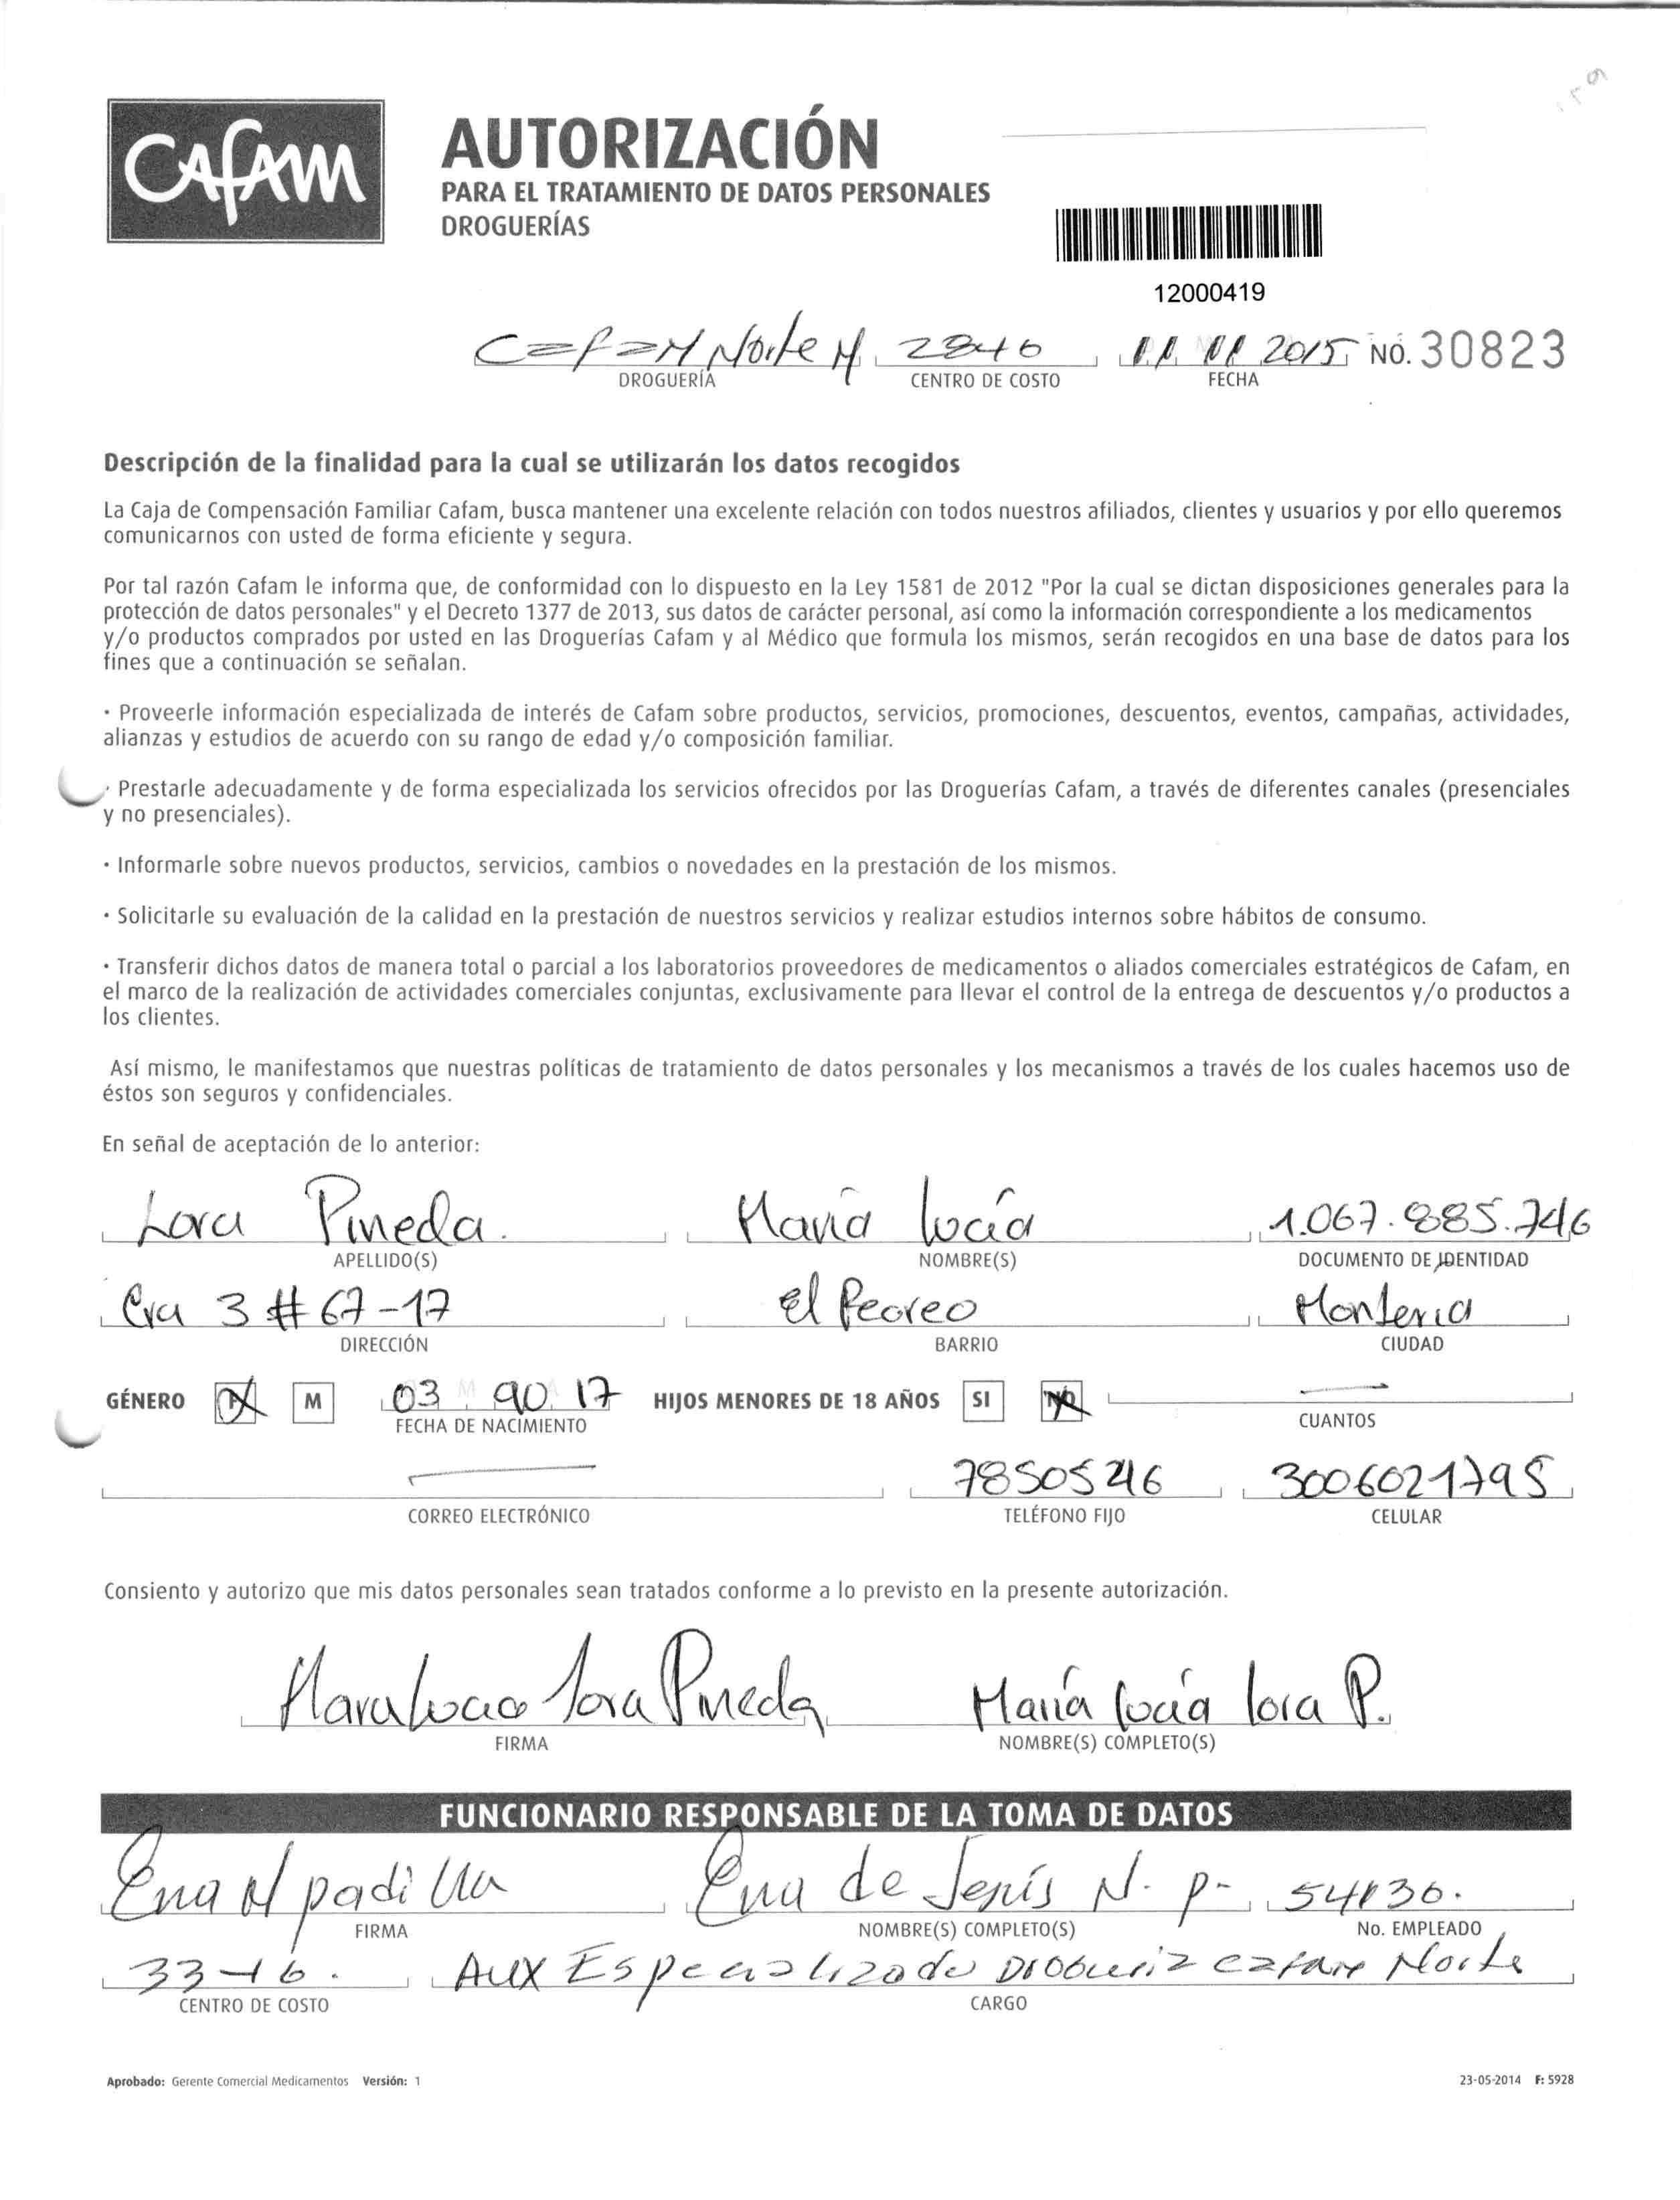 CAFAM
AUTORIZACIÓN
PARA EL TRATAMIENTO DE DATOS PERSONALES
DROGUERÍAS
12000419
Cafam Norte M 2846 11 11 2015 NO. 30823
DROGUERÍA CENTRO DE COSTO FECHA
Descripción de la finalidad para la cual se utilizarán los datos recogidos
La Caja de Compensación Familiar Cafam, busca mantener una excelente relación con todos nuestros afiliados, clientes y usuarios y por ello queremos
comunicarnos con usted de forma eficiente y segura.
Por tal razón Cafam le informa que, de conformidad con lo dispuesto en la Ley 1581 de 2012 "Por la cual se dictan disposiciones generales para la
protección de datos personales" y el Decreto 1377 de 2013, sus datos de carácter personal, así como la información correspondiente a los medicamentos
y/o productos comprados por usted en las Droguerías Cafam y al Médico que formula los mismos, serán recogidos en una base de datos para los
fines que a continuación se señalan.
· Proveerle información especializada de interés de Cafam sobre productos, servicios, promociones, descuentos, eventos, campañas, actividades,
alianzas y estudios de acuerdo con su rango de edad y/o composición familiar.
· Prestarle adecuadamente y de forma especializada los servicios ofrecidos por las Droguerías Cafam, a través de diferentes canales (presenciales
y no presenciales).
· Informarle sobre nuevos productos, servicios, cambios o novedades en la prestación de los mismos.
· Solicitarle su evaluación de la calidad en la prestación de nuestros servicios y realizar estudios internos sobre hábitos de consumo.
· Transferir dichos datos de manera total o parcial a los laboratorios proveedores de medicamentos o aliados comerciales estratégicos de Cafam, en
el marco de la realización de actividades comerciales conjuntas, exclusivamente para llevar el control de la entrega de descuentos y/o productos a
los clientes.
Así mismo, le manifestamos que nuestras políticas de tratamiento de datos personales y los mecanismos a través de los cuales hacemos uso de
éstos son seguros y confidenciales.
En señal de aceptación de lo anterior:
Lora Pineda. María Lucía 1.067.885.746
APELLIDO(S) NOMBRE(S) DOCUMENTO DE IDENTIDAD
Cra 3 # 67-17 El Recreo Montería
DIRECCIÓN BARRIO CIUDAD
GÉNERO F M 03 90 17 HIJOS MENORES DE 18 AÑOS SI NO
FECHA DE NACIMIENTO CUANTOS
78505246 3006021795
CORREO ELECTRÓNICO TELÉFONO FIJO CELULAR
Consiento y autorizo que mis datos personales sean tratados conforme a lo previsto en la presente autorización.
María Lucía Lora Pineda María Lucía Lora P.
FIRMA NOMBRE(S) COMPLETO(S)
FUNCIONARIO RESPONSABLE DE LA TOMA DE DATOS
Ena N padilla Ena de Jesús N. p. 54130.
FIRMA NOMBRE(S) COMPLETO(S) No. EMPLEADO
33-16. Aux Especializado Drogueria cafam Norte
CENTRO DE COSTO CARGO
Aprobado: Gerente Comercial Medicamentos Versión: 1 23-05-2014 F: 5928